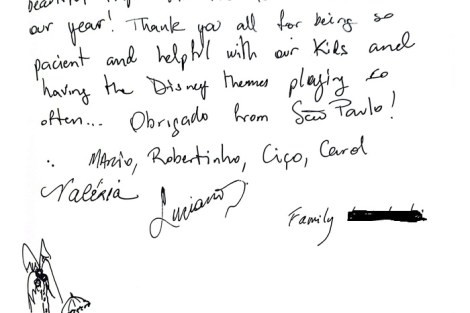 our year! Thank you all for being so
pacient and helpful with our Kids and
having the Disney themes playing so
often... Obrigado from São Paulo!
Marcio, Robertinho, Ciço, Carol
Valéria
Luciano
Family